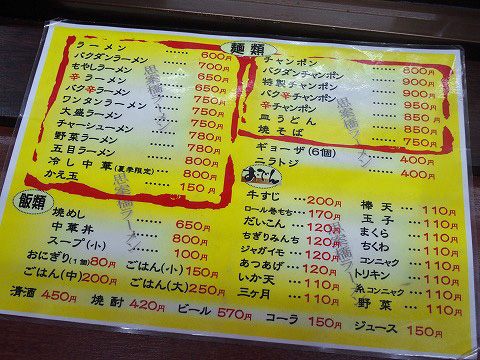 麺類
ラーメン ...... 600円
バクダンラーメン ...... 700円
もやしラーメン ...... 650円
辛ラーメン ...... 650円
バク辛ラーメン ...... 750円
ワンタンラーメン ...... 750円
大盛ラーメン ...... 750円
チャーシューメン ...... 780円
野菜ラーメン ...... 780円
五目ラーメン ...... 800円
冷し中華(夏季限定) ...... 800円
かえ玉 ...... 150円
チャンポン ...... 800円
バクダンチャンポン ...... 900円
特製チャンポン ...... 900円
バク辛チャンポン ...... 950円
辛チャンポン ...... 850円
皿うどん ...... 850円
焼そば ...... 750円
ギョーザ(6個) ...... 400円
ニラトジ ...... 400円
思案橋ラーメン
思案橋ラーメン
思案橋ラーメン
飯類
焼めし ...... 650円
中華丼 ...... 800円
スープ(小) ...... 100円
おにぎり(1個) 80円
ごはん(小) 150円
ごはん(中) 200円
ごはん(大) 250円
おでん
牛すじ ... 200円
ロール巻もち ... 170円
だいこん ... 120円
ちぎりみんち ... 120円
ジャガイモ ... 120円
あつあげ ... 120円
いか天 ... 110円
三ヶ月 ... 110円
棒天 ... 110円
玉子 ... 110円
まくら ... 110円
ちくわ ... 110円
コンニャク ... 110円
トリキン ... 110円
糸コンニャク ... 110円
野菜 ... 110円
清酒 450円 焼酎 420円 ビール 570円 コーラ 150円 ジュース 150円